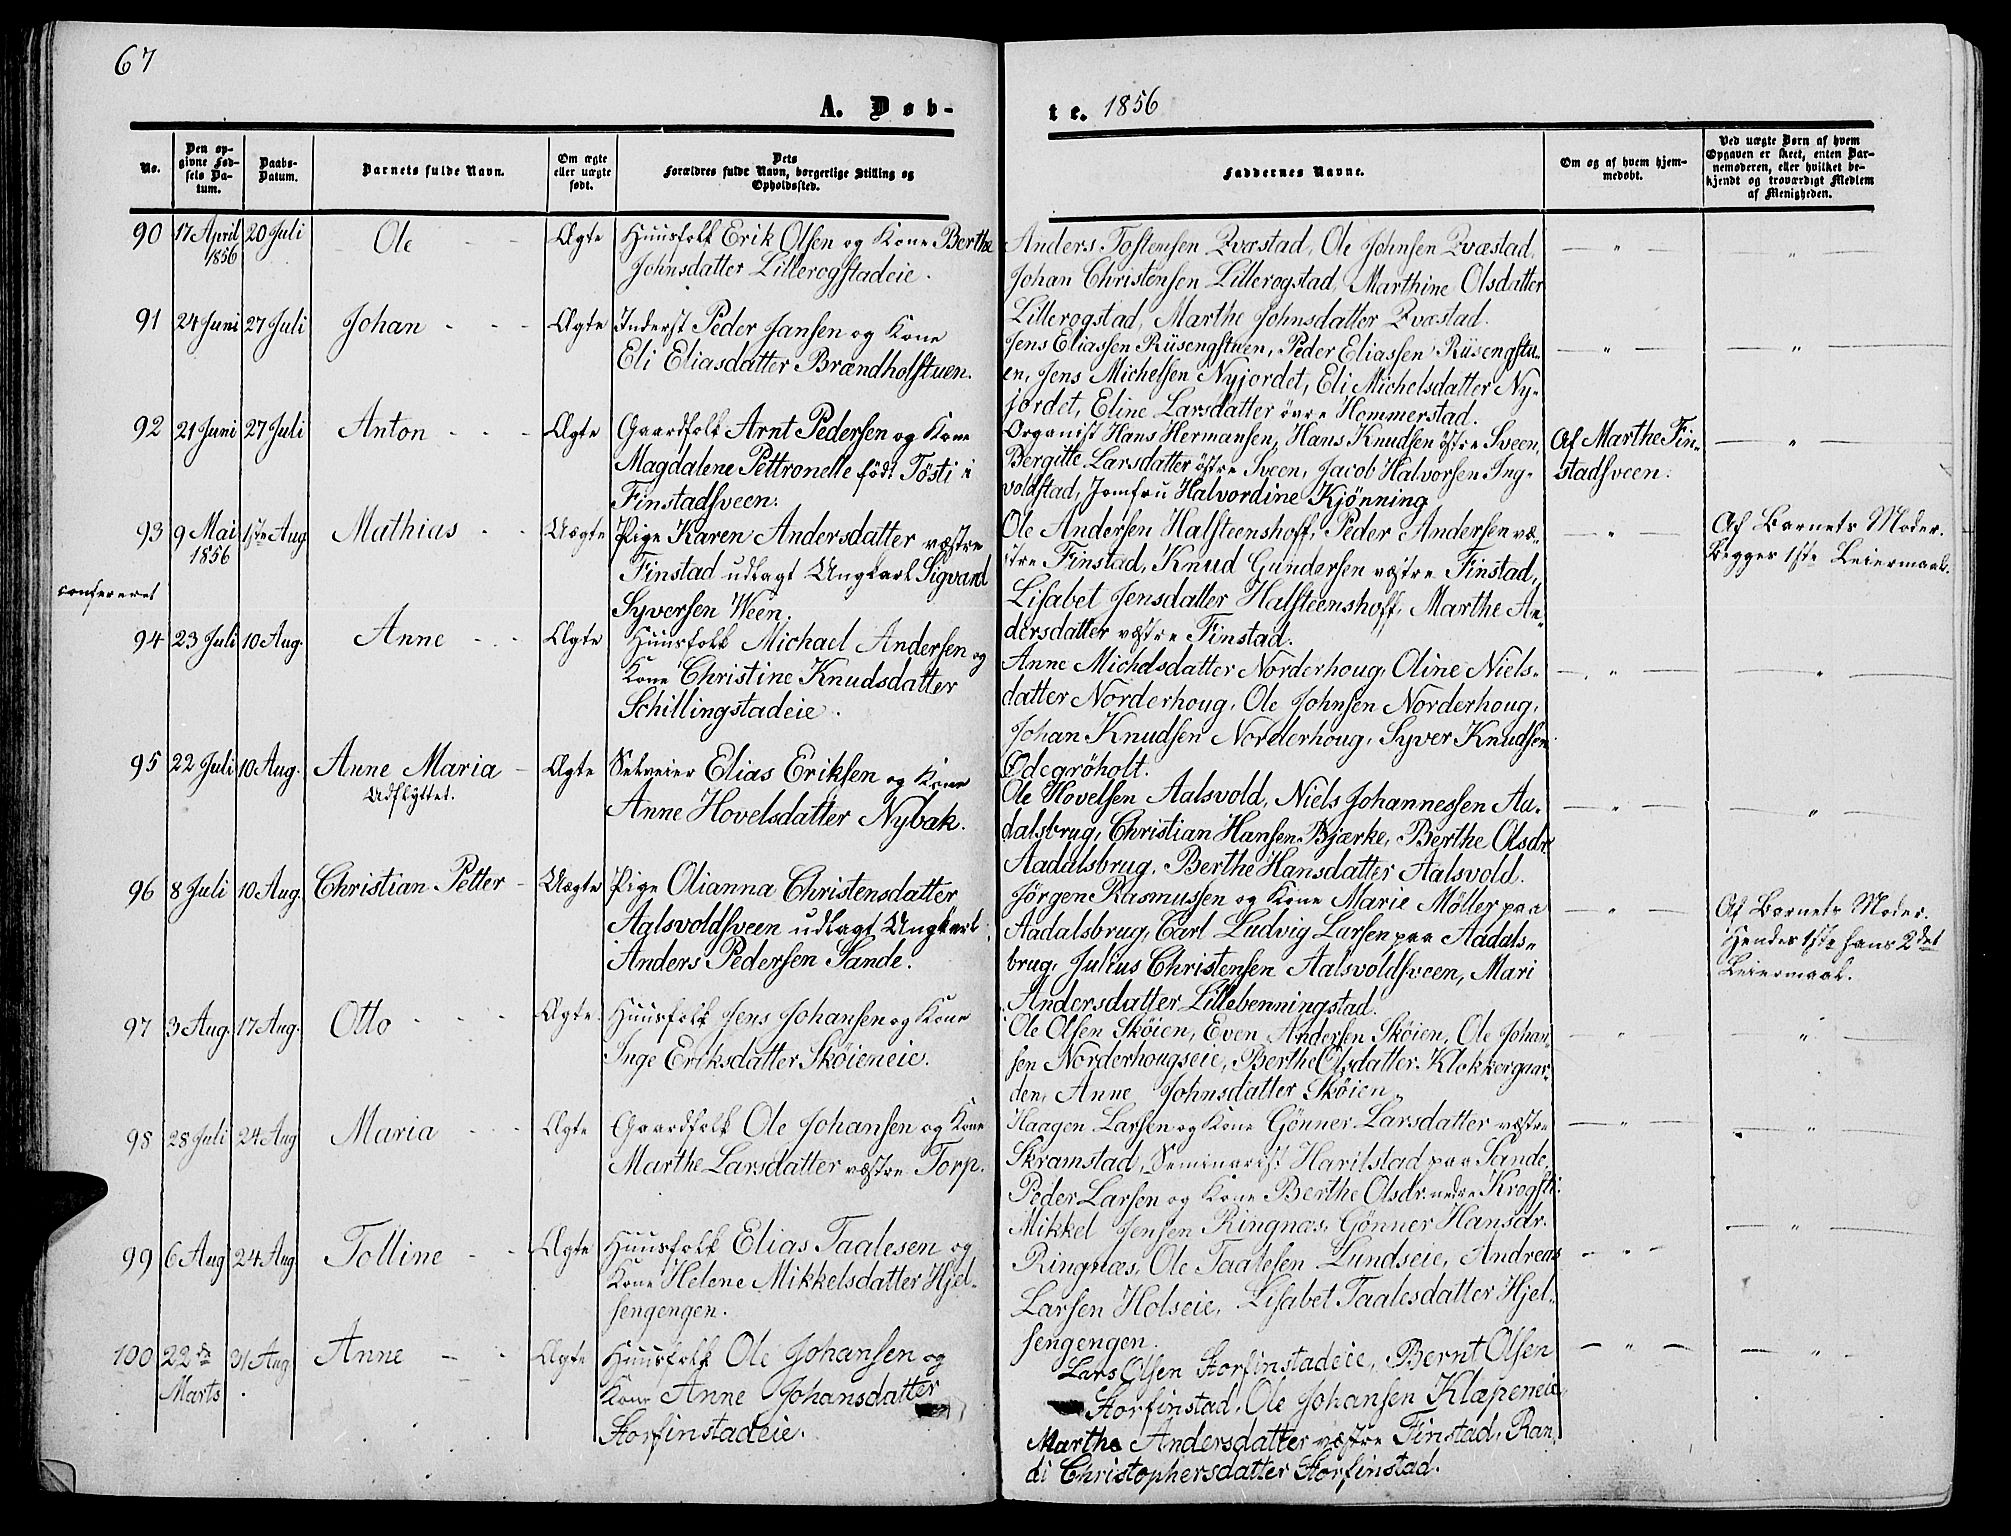 67
A. Døb-
te. 1856
No.
Den op-
givne Fød-
sels Da-
tum.
Daabs-
Datum.
Barnets fulde Navn.
Om ægte
eller uægte
født.
Dets
Forældres fulde Navn, borgerlige Stilling og
Opholdssted.
Faddernes Navne.
Om og af hvem hjem-
medøbt.
Ved uægte Børn af hvem
Opgaven er skeet, enten Bar-
nemoderen, eller hvilket be-
kjendt og troværdigt Medlem
af Menigheden.
90 17 April 20 Juli Ole Ægte Huusfolk Erik Olsen og Kone Berthe
1856
Johnsdatter Lillerogstadeie.
Anders Tostensen Qvæstad, Ole Johnsen Qvæstad,
Johan Christensen Lillerogstad, Marthine Olsdatter
Lillerogstad, Marthe Johnsdatter Qvæstad.
91 24 Juni 27 Juli Johan Ægte Inderst Peder Jansen og Kone
Eli Eliasdatter Brændholstuen.
Jens Eliassen Rüsengstuen, Peder Eliassen Rüsengstu-
en, Jens Michelsen Nyjordet, Eli Michelsdatter Ny-
jordet, Eline Larsdatter övre Hommerstad.
92 21 Juni 27 Juli Anton Ægte Gaardfolk Arnt Pedersen og Kone
Magdalene Pettronelle födt Tösti i
Finstadsveen.
Organist Hans Hermansen, Hans Knudsen östre Sveen,
Bergitte Larsdatter östre Sveen, Jacob Halvorsen Ing-
voldstad, Jomfru Halvordine Kjönning
Af Marthe Fin-
stadsveen.
93 9 Mai 1ste Aug Mathias Uægte Pige Karen Andersdatter væstre
1856
Finstad udlagt Ungkarl Sigvard
Syversen Ween.
Ole Andersen Halsteenshoff, Peder Andersen væ-
stre Finstad, Knud Gundersen væstre Finstad,
Lisabet Jensdatter Halsteenshoff, Marthe An-
dersdatter væstre Finstad.
Af Barnets Moder.
Begges 1ste Leiermaal.
confereret
94 23 Juli 10 Aug. Anne Ægte Huusfolk Michael Andersen og
Kone Christine Knudsdatter
Schillingstadeie.
Anne Michelsdatter Norderhoug, Oline Niels-
datter Norderhoug, Ole Johnsen Norderhoug,
Johan Knudsen Norderhoug, Syver Knudsen
Ødegröholt.
95 22 Juli 10 Aug. Anne Maria Ægte Selveier Elias Eriksen og Kone
Udflyttet.
Anne Hovelsdatter Nybak.
Ole Hovelsen Aalsvold, Niels Johannessen Aa-
dalsbrug, Christian Hansen Bjærke, Berthe Olsdr.
Aadalsbrug, Berthe Hansdatter Aalsvold.
96 8 Juli 10 Aug. Christian Petter Uægte Pige Olianna Christensdatter
Aalsvoldsveen udlagt Ungkarl
Anders Pedersen Sande.
Jörgen Rasmussen og Kone Marie Möller paa
Aadalsbrug, Carl Ludvig Larsen paa Aadals-
brug, Julius Christensen Aalsvoldsveen, Mari
Andersdatter Lillebenningstad.
Af Barnets Moder.
Hendes 1ste hans 2det
Leiermaal.
97 3 Aug. 17 Aug. Otto Ægte Huusfolk Jens Johansen og Kone
Inge Eriksdatter Sköieneie.
Ole Olsen Sköien, Even Andersen Sköien, Ole Johan-
sen Norderhougseie, Berthe Olsdatter Klokkergaar-
den, Anne Johnsdatter Sköien.
98 28 Juli 24 Aug Maria Ægte Gaardfolk Ole Johansen og Kone
Marthe Larsdatter væstre Torp.
Haagen Larsen og Kone Gönner Larsdatter væstre
Skramstad, Seminarist Harilstad paa Sande,
Peder Larsen og Kone Berthe Olsdr. nedre Krogsti.
99 6 Aug 24 Aug Tolline Ægte Huusfolk Elias Taalesen og
Kone Helene Mikkelsdatter Hjel-
sengengen.
Mikkel Jensen Ringnæs, Gönner Hansdr.
Ringnæs, Ole Taalesen Lundseie, Andreas
Larsen Holseie, Lisabet Taalesdatter Hjel-
sengengen.
100 22de 31 Aug Anne Ægte Huusfolk Ole Johansen og
Marts
Kone Anne Johansdatter
Storfinstadeie.
Lars Olsen Storfinstadeie, Bernt Olsen
Storfinstad, Ole Johansen Klæpeneie
Marthe Andersdatter væstre Finstad, Ran-
di Christophersdatter Storfinstad.